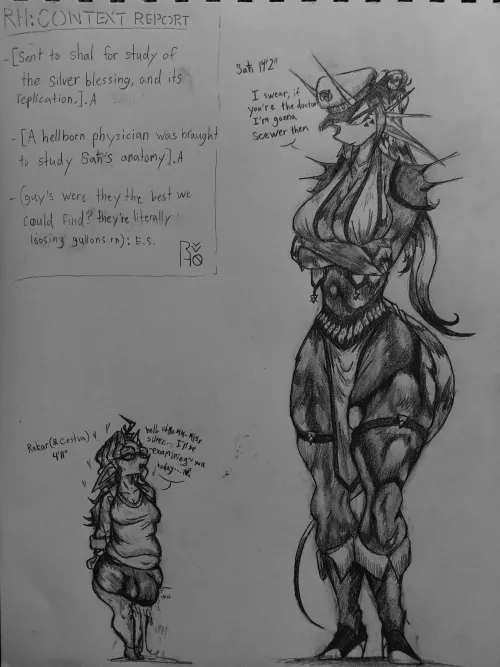 RH: CONTEXT REPORT
-[Sent to shal for study of
the silver blessing, and its
replication.]. A
-[A hellborn physician was braught
to study Sati's anatomy]. A
-(guy's were they the best we
could find? they're literally
loosing gullons rn): E.S.
Sati 19'2"
I swear, if
you're the doctor
I'm gonna
scewer them
4'8"
examining you
today...